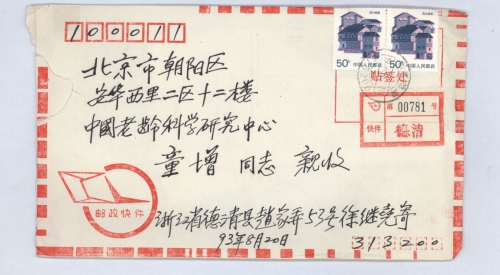 100011
50分 中国人民邮政
50分 中国人民邮政
北京市朝阳区
贴签处
安华西里二区十二楼
第 00781 号
中国老龄科学研究中心
快件 德清
童增 同志 亲收
邮政快件
浙江省德清县赵家弄53号徐继尧寄
93年8月20日
313200